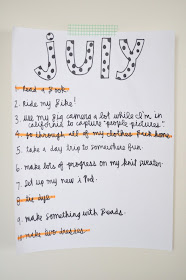 july
1. Read a Book.
2. Ride my Bike!
3. use my Big camera a lot while I'm in
california to capture "people pictures."
4. go through all of my clothes back home.
5. take a day trip to somewhere fun.
6. make lots of progress on my knit sweater.
7. set up my new iPod.
8. tie dye.
9. make something with Beads.
10. make two dresses.